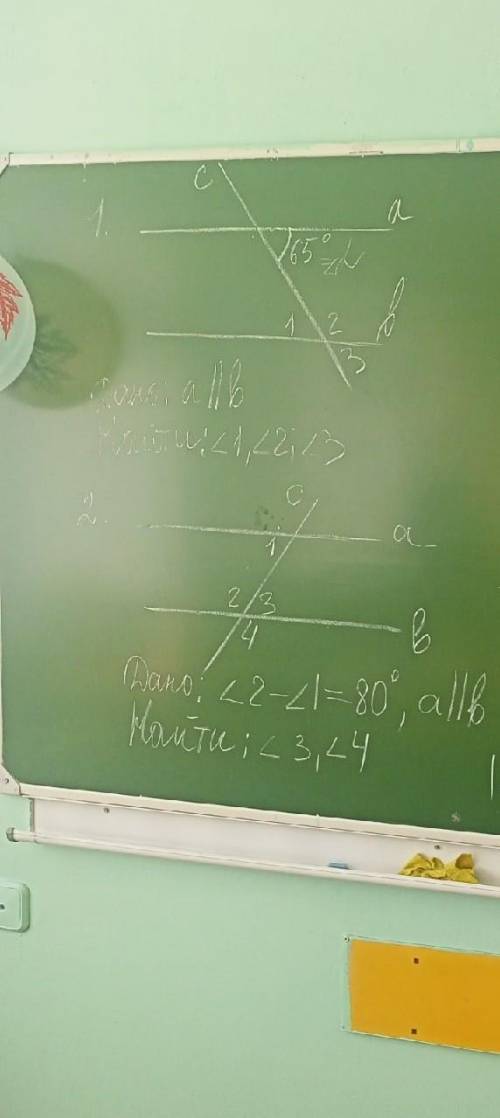 c
1. a
65°=∠4
1 2 b
3
Дано: a||b
Найти: ∠1, ∠2; ∠3
c
2. a
1
2 3
4 b
Дано: ∠2-∠1=80°, a||b
Найти: ∠3, ∠4